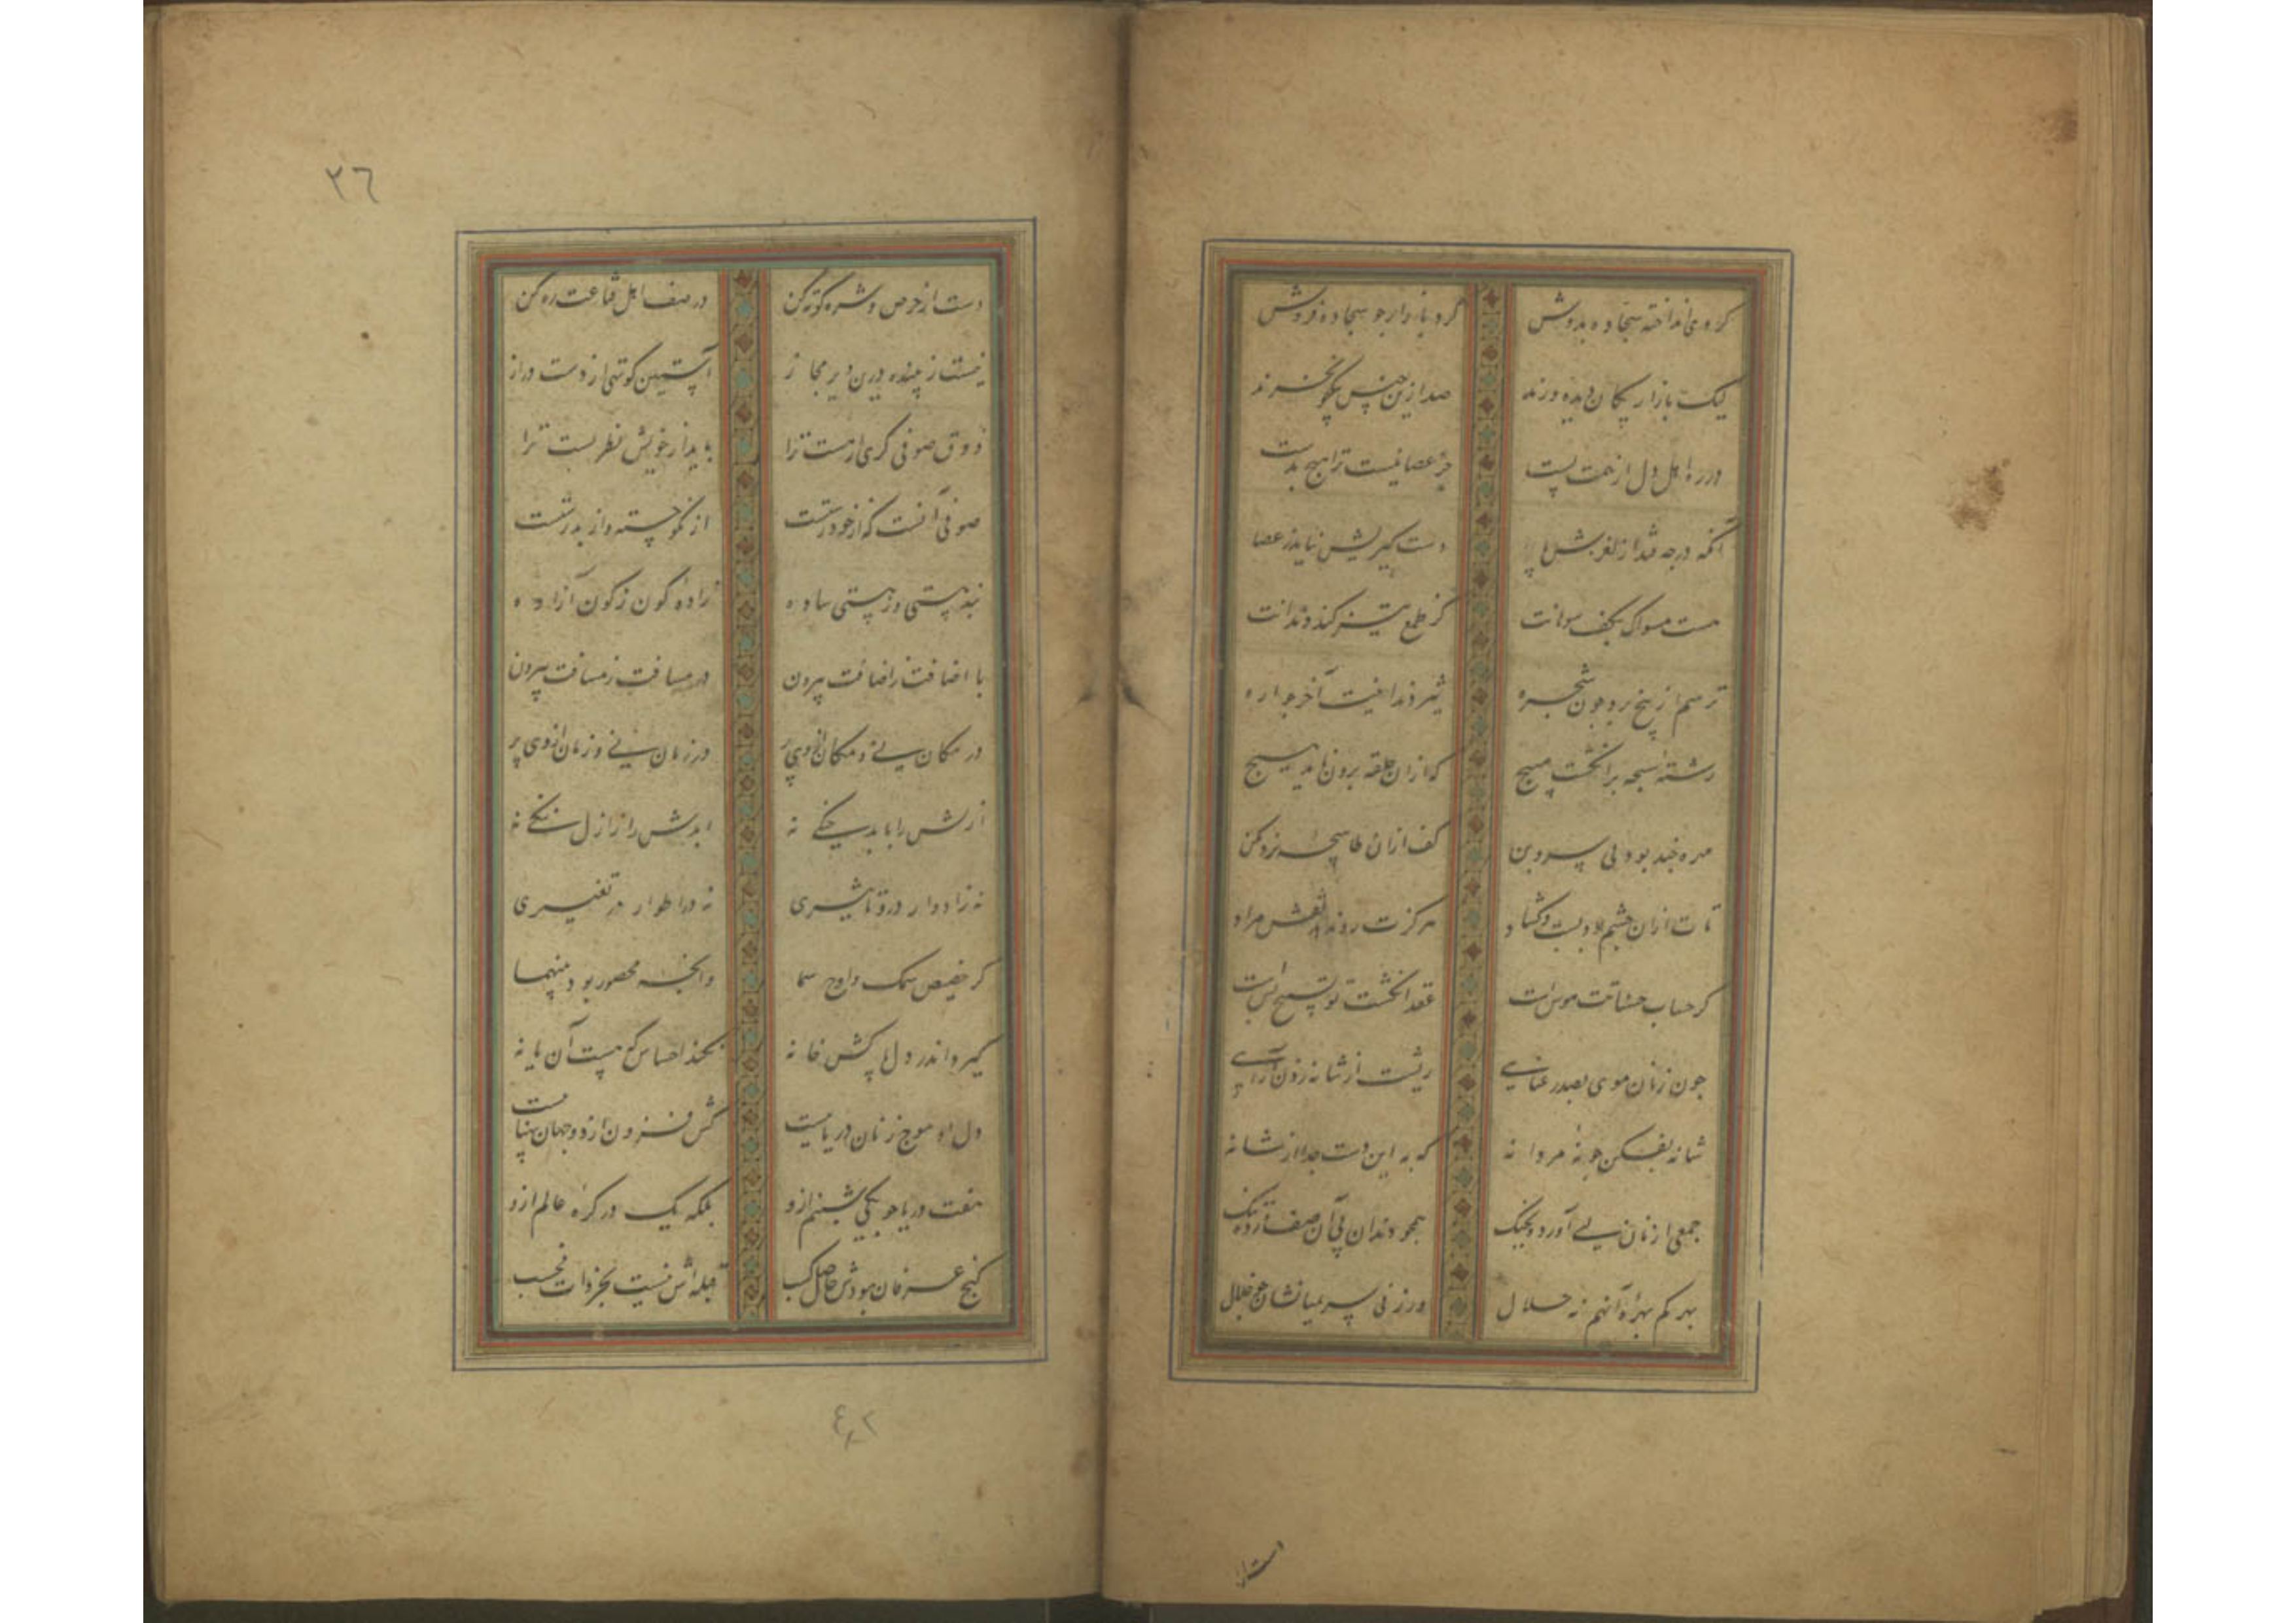 کرده‌ای انداخته سجاده بدوش
کرد بازار جو سجاده فروش
لیک بازاریکان دیده ورند
صد ازین جنس بیکجو نخرند
در ره اهل دل از همت پست
جز عصا نیست ترا هیچ بدست
دست کیریش نیاید ز عصا
هست مسواک بکف سوهانت
کز طمع تیز کند دندانت
ترسم از بیخ برد چون شجره
رشته سبحه بر انکشت مپیچ
که ازان حلقه برون ناید هیچ
مهره چند بود بی سر و بن
تات ازان چشم بود بست و کشاد
هرکزت رو ندهد نقش مراد
کر حساب حسناتت هوس است
عقد انکشت تو تسبیح بس است
جون زنان موی بصد رعنایی
ریشت از شانه زدن آرایی
شانه بفکن جو نهٔ مردانه
که به این دست جدا از شانه
جمعی از نان بی آورد بجنک
همجو دندان پی آن صف زده تنک
بهر کم بهره آنهم نه حلال
ورزنی بر سر میانشان جو خلال
دستار
٣٦
دست از حرص و شره کوته کن
در صف اهل قناعت ره کن
نیست زیبنده درین دیر مجاز
آستین کوتهی از دست دراز
ذوق صوفی کری ار هست ترا
باید از خویش نظر بست ترا
صوفی آنست که از خود رستست
از نکو جسته و از بد رستست
نه به پستی و ز پستی ساده
زاده کون ز کون آزاده
با اضافت ز اضافت بیرون
در مسافت ز مسافت بیرون
در مکان نی و مکان از وی پر
در زمان نی و زمان از وی پر
ازلش را با بد جنکی نه
ابدش را ز ازل ننکی نه
نه ز ادوار درو تأثیری
نه در اطوار درو تغییری
کر حضیض سمک و اوج سما
وانجه محصور بود بینهما
کیرد اندر دل پاکش خانه
نکند احساس که هست آن یا نه
دل او موج زنان دریاییست
کش فزون از دو جهان پهناییست
هفت دریا جو یکی شبنم ازو
بلکه یک در کره عالم ازو
کنج عرفان بودش حاصل کسب
قبله اش نیست بجز ذات فحسب